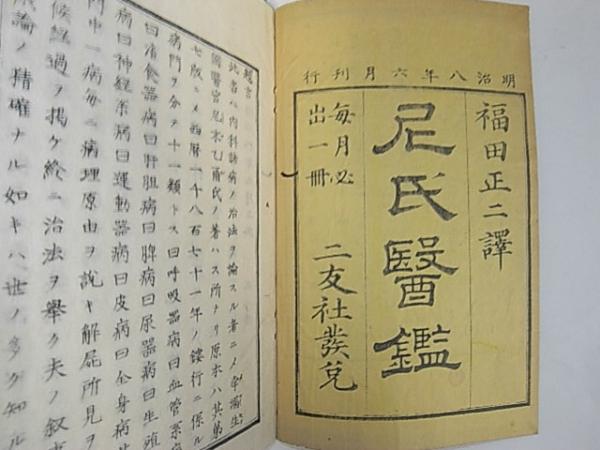 明治八年六月刊行
福田正二譯
尼氏醫鑑
毎月必
出一冊
二友社發兌
言
此書ハ内科諸病ノ治法ヲ論スル者ニメ孛漏生
國醫官尼 乙 氏ノ著ハス所ナリ原本ハ其第
七版ニメ西暦一千八百七十一年ノ鏤行ニ係ル
病門ヲ分テ十一類トス曰呼吸器病曰血管系病
曰消食器病曰肝胆病曰脾病曰尿器病曰生殖
病曰神経系病曰運動器病曰皮病曰全身病
門中一病毎ニ病理原由ヲ説キ解屍所見ヲ
候経過ヲ掲ケ終ニ治法ヲ舉ク夫ノ叙
論ノ精確ナル如キハ世ノ多ク知ル